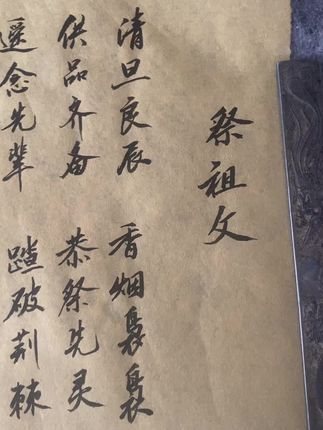 祭祖文
清旦良辰 香烟袅袅
供品齐备 恭祭先灵
遥念先辈 踏破荆棘